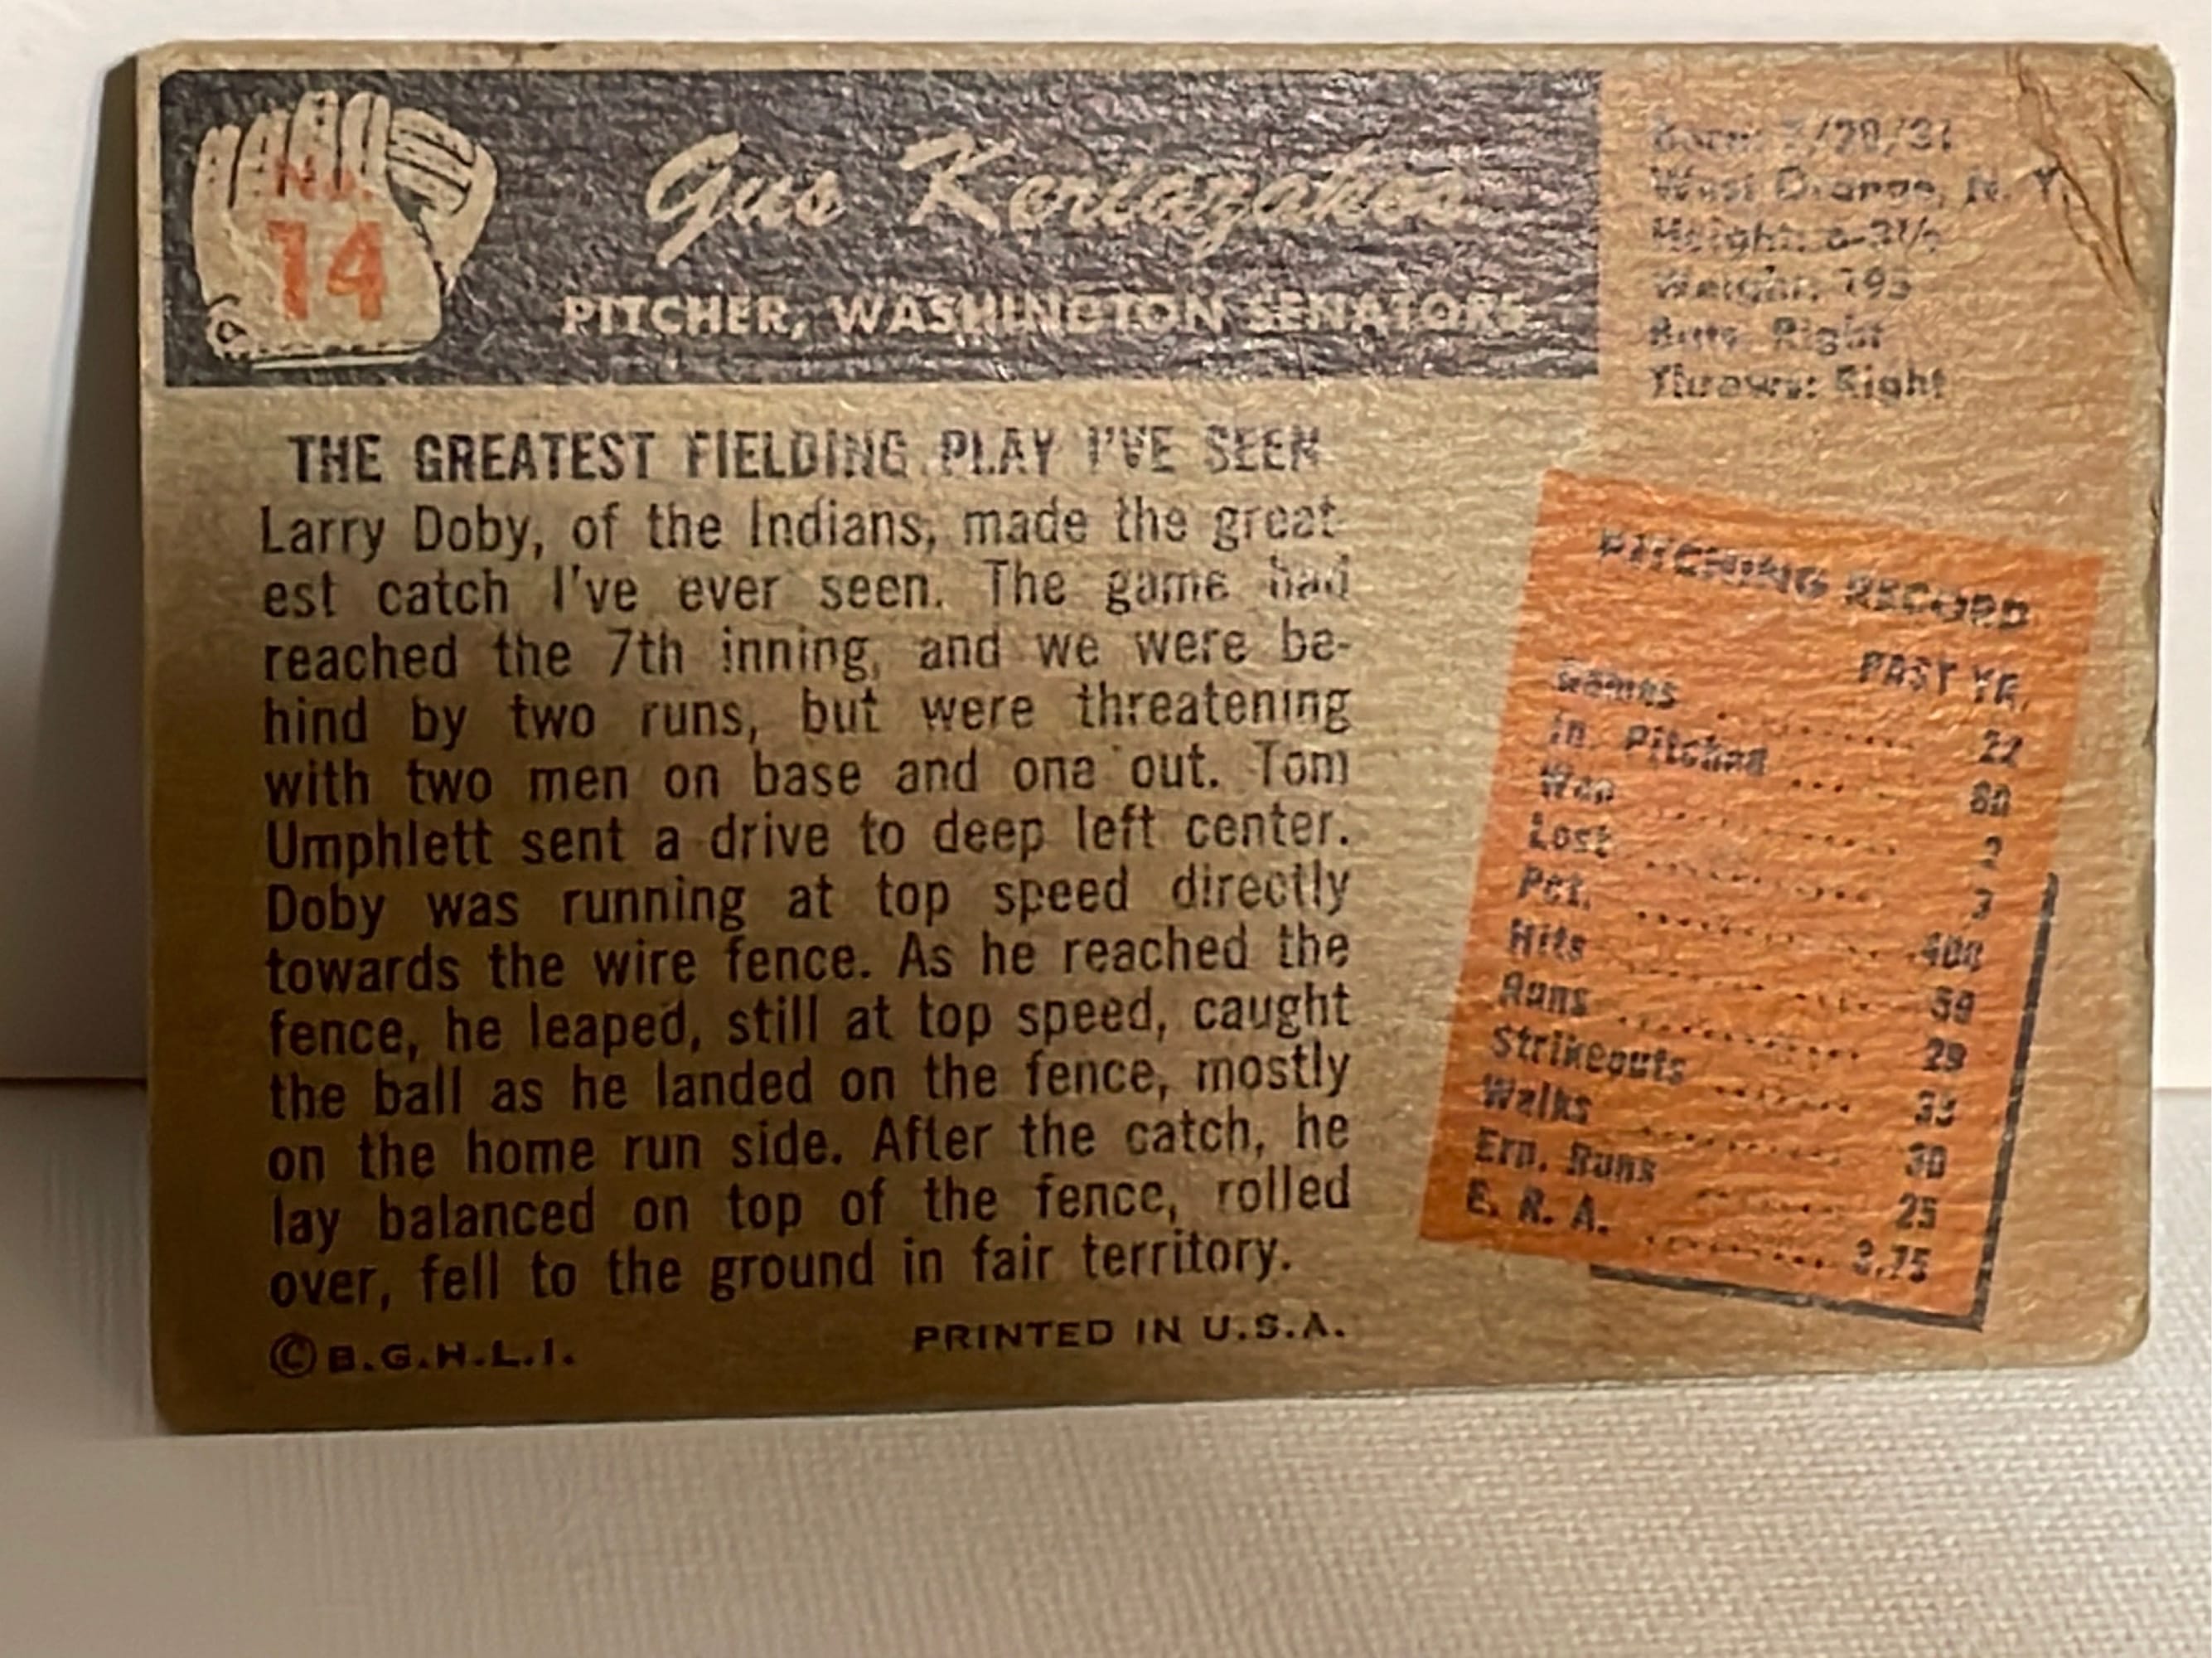 No.
14
Gus Keriazakos
PITCHER, WASHINGTON SENATORS
Born: /31
West Orange, N. Y.
Height: 6-3½
Weight: 195
Bats: Right
Throws: Right
THE GREATEST FIELDING PLAY I'VE SEEN
Larry Doby, of the Indians, made the great-
est catch I've ever seen. The game had
reached the 7th inning, and we were be-
hind by two runs, but were threatening
with two men on base and one out. Tom
Umphlett sent a drive to deep left center.
Doby was running at top speed directly
towards the wire fence. As he reached the
fence, he leaped, still at top speed, caught
the ball as he landed on the fence, mostly
on the home run side. After the catch, he
lay balanced on top of the fence, rolled
over, fell to the ground in fair territory.
© B.G.H.L.I.
PRINTED IN U.S.A.
PITCHING RECORD
PAST YR.
Games ........ 22
In. Pitched ..... 60
Won ........ 2
Lost ........ 3
Pct. ........ .400
Hits ........ 59
Runs ........ 29
Strikeouts ........ 33
Walks ........ 30
Ern. Runs ........ 25
E. R. A. ........ 3.75